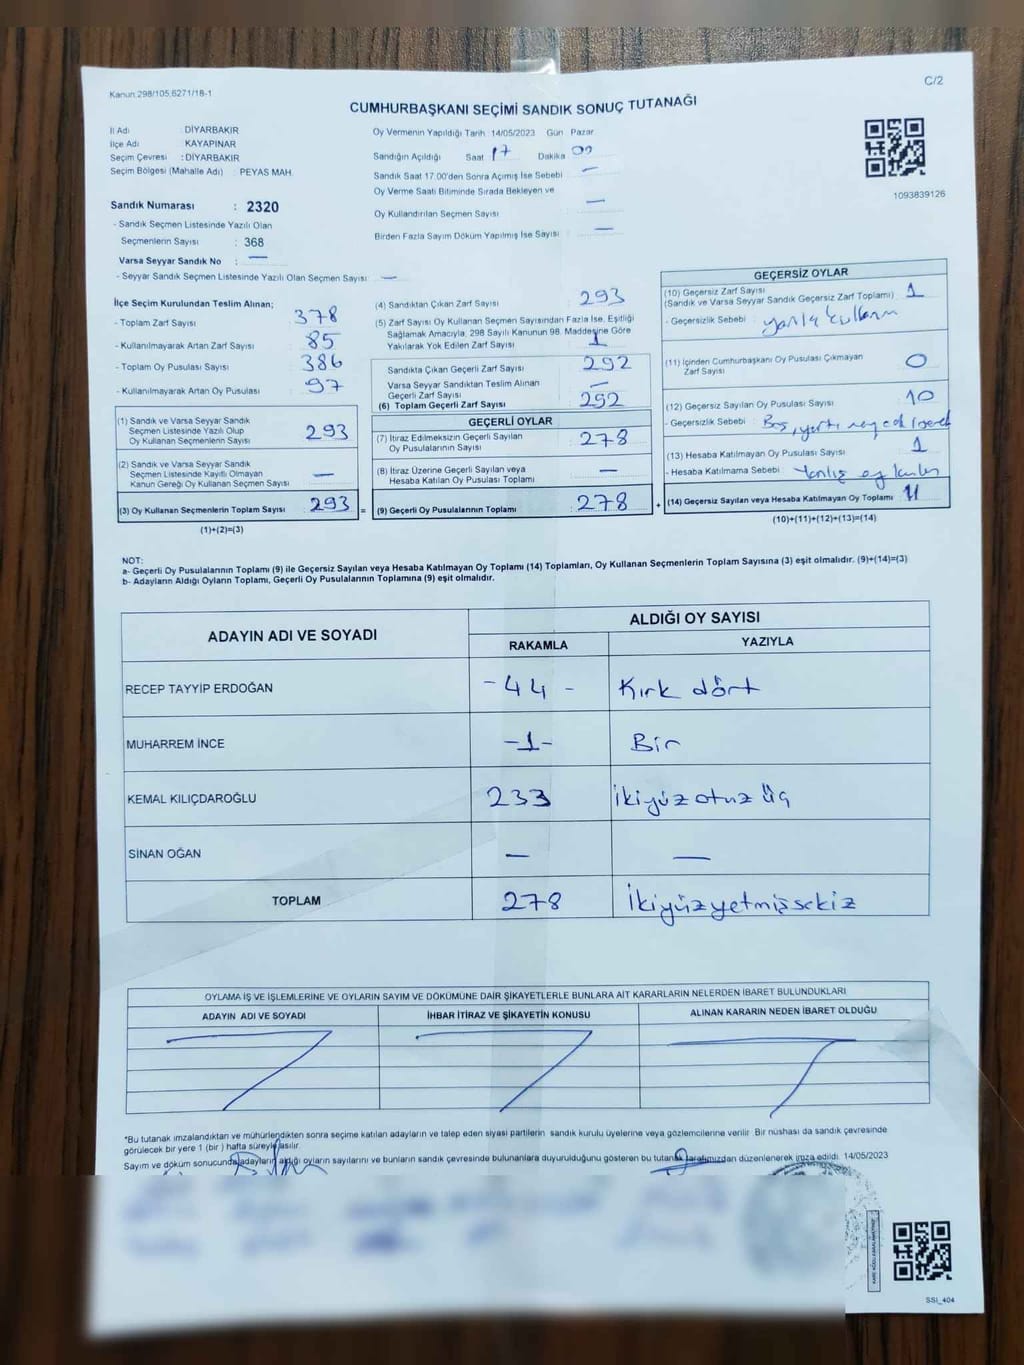 Kanun.298/105,6271/18-1
C/2
CUMHURBAŞKANI SEÇİMİ SANDIK SONUÇ TUTANAĞI
İl Adı : DİYARBAKIR
İlçe Adı KAYAPINAR
Seçim Çevresi : DİYARBAKIR
Seçim Bölgesi (Mahalle Adı) PEYAS MAH.
Sandık Numarası : 2320
- Sandık Seçmen Listesinde Yazılı Olan
Seçmenlerin Sayısı : 368
Varsa Seyyar Sandık No : —
- Seyyar Sandık Seçmen Listesinde Yazılı Olan Seçmen Sayısı —
Oy Vermenin Yapıldığı Tarih 14/05/2023 Gün Pazar
Sandığın Açıldığı Saat 17 Dakika 00
Sandık Saat 17.00'den Sonra Açımış İse Sebebi —
Oy Verme Saati Bitiminde Sırada Bekleyen ve
Oy Kullandırılan Seçmen Sayısı —
Birden Fazla Sayım Döküm Yapılmış İse Sayısı —
1093839126
İlçe Seçim Kurulundan Teslim Alınan;
- Toplam Zarf Sayısı 378
- Kullanılmayarak Artan Zarf Sayısı 85
- Toplam Oy Pusulası Sayısı 386
- Kullanılmayarak Artan Oy Pusulası 97
(1) Sandık ve Varsa Seyyar Sandık
Seçmen Listesinde Yazılı Olup
Oy Kullanan Seçmenlerin Sayısı 293
(2) Sandık ve Varsa Seyyar Sandık
Seçmen Listesinde Kayıtlı Olmayan
Kanun Gereği Oy Kullanan Seçmen Sayısı —
(3) Oy Kullanan Seçmenlerin Toplam Sayısı 293 =
(1)+(2)=(3)
(4) Sandıktan Çıkan Zarf Sayısı 293
(5) Zarf Sayısı Oy Kullanan Seçmen Sayısından Fazla İse, Eşitliği
Sağlamak Amacıyla, 298 Sayılı Kanunun 98. Maddesine Göre
Yakılarak Yok Edilen Zarf Sayısı 1
Sandıkta Çıkan Geçerli Zarf Sayısı 292
Varsa Seyyar Sandıktan Teslim Alınan
Geçerli Zarf Sayısı —
(6) Toplam Geçerli Zarf Sayısı 292
GEÇERLİ OYLAR
(7) İtiraz Edilmeksizin Geçerli Sayılan
Oy Pusulalarının Sayısı 278
(8) İtiraz Üzerine Geçerli Sayılan veya
Hesaba Katılan Oy Pusulası Toplamı —
(9) Geçerli Oy Pusulalarının Toplamı 278 +
GEÇERSİZ OYLAR
(10) Geçersiz Zarf Sayısı
(Sandık ve Varsa Seyyar Sandık Geçersiz Zarf Toplamı) 1
- Geçersizlik Sebebi :
(11) İçinden Cumhurbaşkanı Oy Pusulası Çıkmayan
Zarf Sayısı 0
(12) Geçersiz Sayılan Oy Pusulası Sayısı 10
- Geçersizlik Sebebi : Boş,
(13) Hesaba Katılmayan Oy Pusulası Sayısı 1
- Hesaba Katılmama Sebebi Yanlış oy
(14) Geçersiz Sayılan veya Hesaba Katılmayan Oy Toplamı 11
(10)+(11)+(12)+(13)=(14)
NOT:
a- Geçerli Oy Pusulalarının Toplamı (9) ile Geçersiz Sayılan veya Hesaba Katılmayan Oy Toplamı (14) Toplamları, Oy Kullanan Seçmenlerin Toplam Sayısına (3) eşit olmalıdır. (9)+(14)=(3)
b- Adayların Aldığı Oyların Toplamı, Geçerli Oy Pusulalarının Toplamına (9) eşit olmalıdır.
ADAYIN ADI VE SOYADI
ALDIĞI OY SAYISI
RAKAMLA YAZIYLA
RECEP TAYYİP ERDOĞAN -44- Kırk dört
MUHARREM İNCE -1- Bir
KEMAL KILIÇDAROĞLU 233 İkiyüzotuz Üç
SİNAN OĞAN — —
TOPLAM 278 İkiyüzyetmişsekiz
OYLAMA İŞ VE İŞLEMLERİNE VE OYLARIN SAYIM VE DÖKÜMÜNE DAİR ŞİKAYETLERLE BUNLARA AİT KARARLARIN NELERDEN İBARET BULUNDUKLARI
ADAYIN ADI VE SOYADI İHBAR İTİRAZ VE ŞİKAYETİN KONUSU ALINAN KARARIN NEDEN İBARET OLDUĞU
*Bu tutanak imzalandıktan ve mühürlendikten sonra seçime katılan adayların ve talep eden siyasi partilerin sandık kurulu üyelerine veya gözlemcilerine verilir. Bir nüshası da sandık çevresinde
görülecek bir yere 1 (bir) hafta süreyle asılır.
Sayım ve döküm sonucunda adayların aldığı oyların sayılarını ve bunların sandık çevresinde bulunanlara duyurulduğunu gösteren bu tutanak tarafımızdan düzenlenerek imza edildi. 14/05/2023
SSI_404